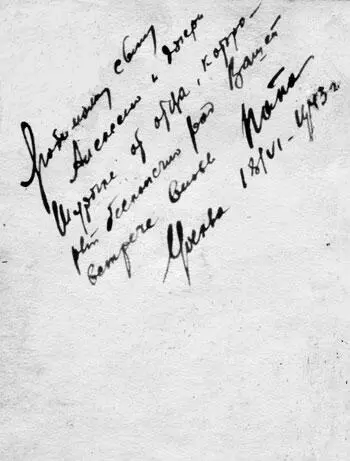 Любимому сыну
Алексею и дочери
Шурочке от отца, которо-
рый бесконечно рад Вашей
встрече вновь Папа
Москва 18/VI-1943 г